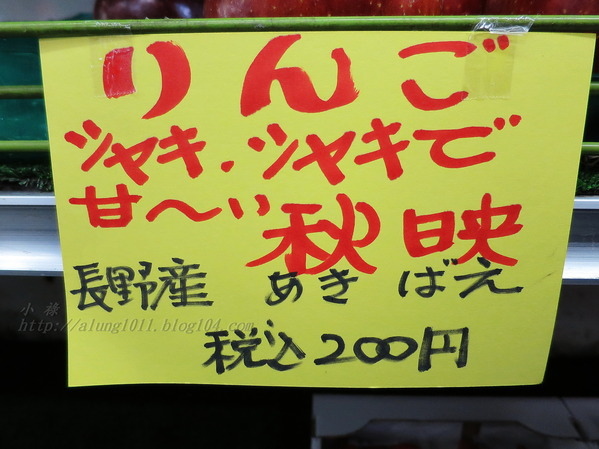 りんご
シャキ、シャキで
甘〜い 秋映
長野産 あきばえ
税込200円
小祿
http://alung1011.blog104.com